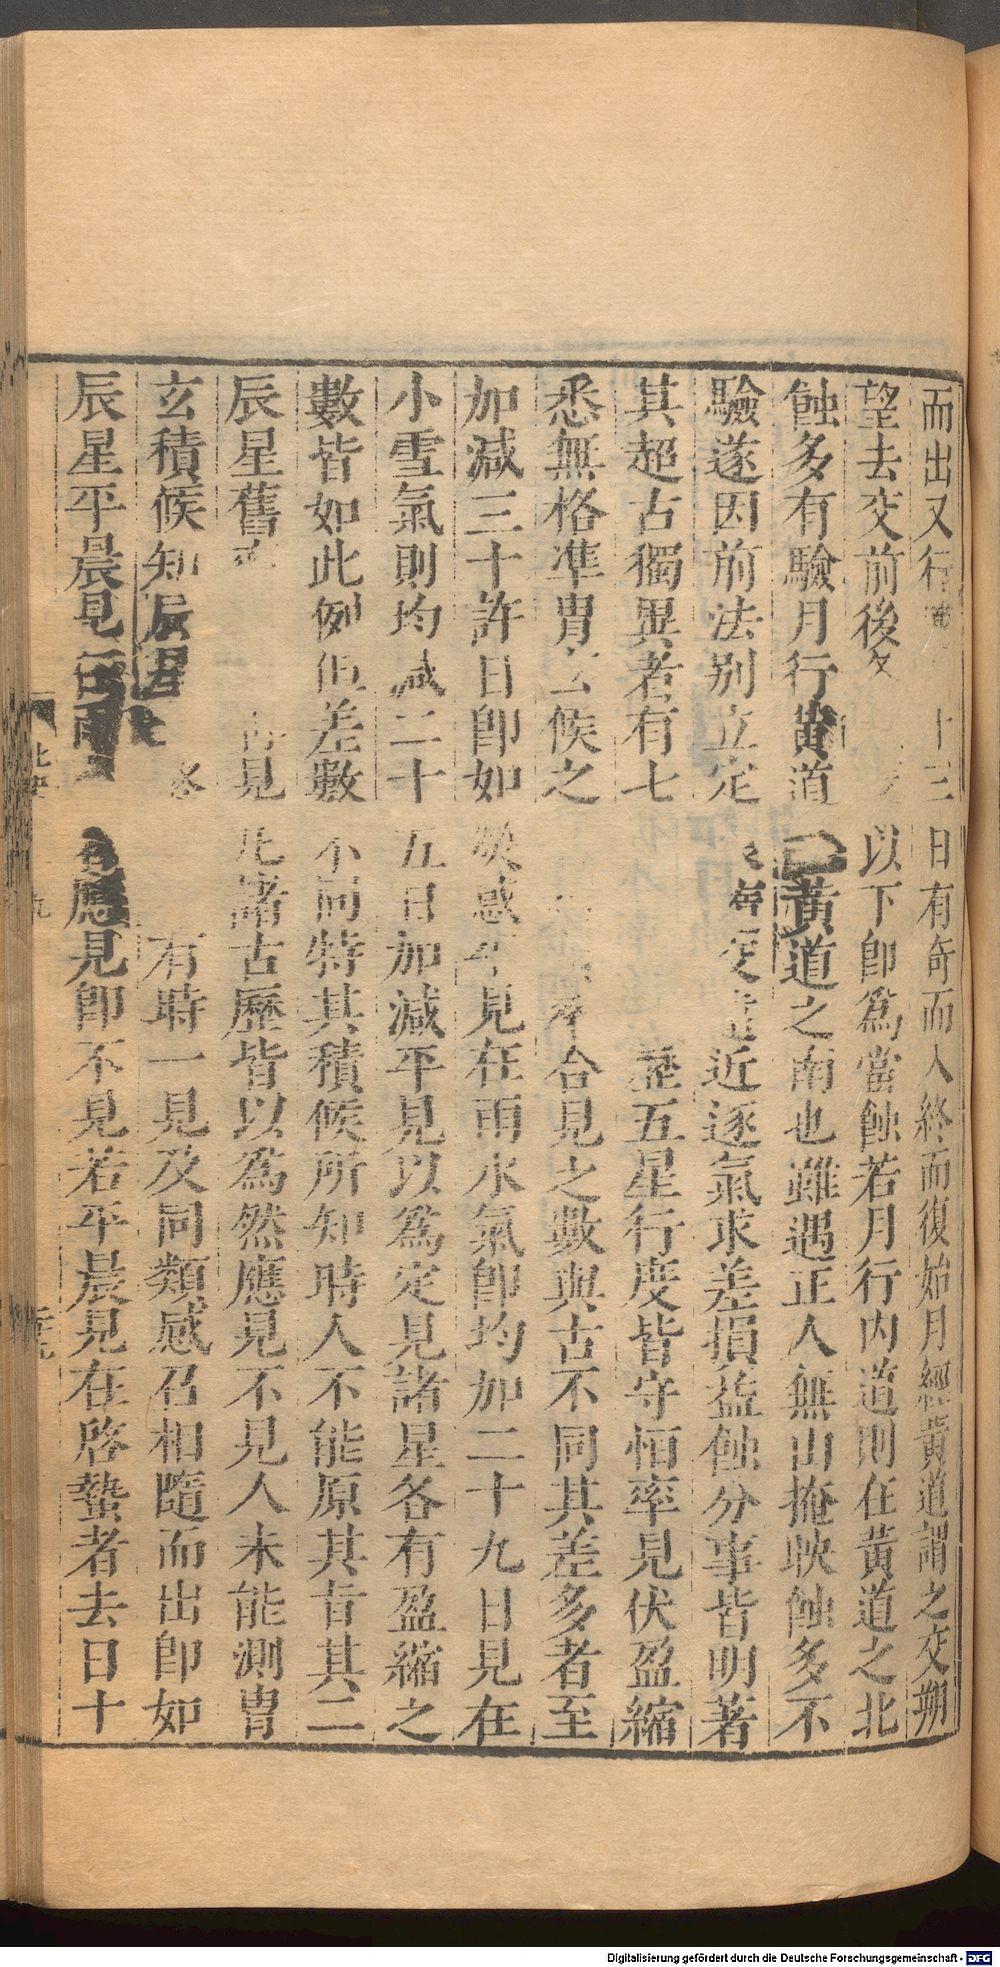 而出又行 十三日有奇而入終而復始月經黃道謂之交朔
望去交前後 以下卽爲當蝕若月行內道則在黃道之北
蝕多有驗月行黃道 黃道之南也雖遇正入無由掩映蝕多不
驗遂因前法別立定 交 近逐氣求差損益蝕分事皆明著
其超古獨異者有七 歷五星行度皆守恒率見伏盈縮
悉無格準胄玄候之 合見之數與古不同其差多者至
加減三十許日卽如熒惑平見在雨水氣卽均加二十九日見在
小雪氣則均減二十五日加減平見以爲定見諸星各有盈縮之
數皆如此例但差數不同特其積候所知時人不能原其旨其二
辰星舊 再見 諸古歷皆以爲然應見不見人未能測胄
玄積候知辰星 有時一見及同類感召相隨而出卽如
辰星平晨見在雨 應見卽不見若平晨見在啓蟄者去日十
Digitalisierung gefördert durch die Deutsche Forschungsgemeinschaft - DFG